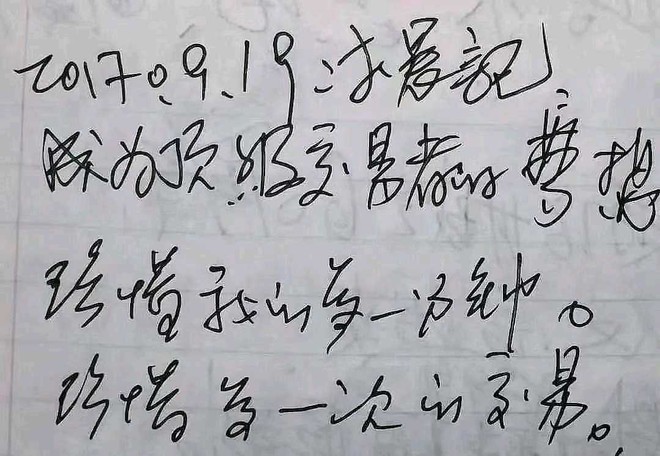 2017.9.19 江恩記
成为顶级交易者的梦想
珍惜我的每一分钟。
珍惜每一次的交易。